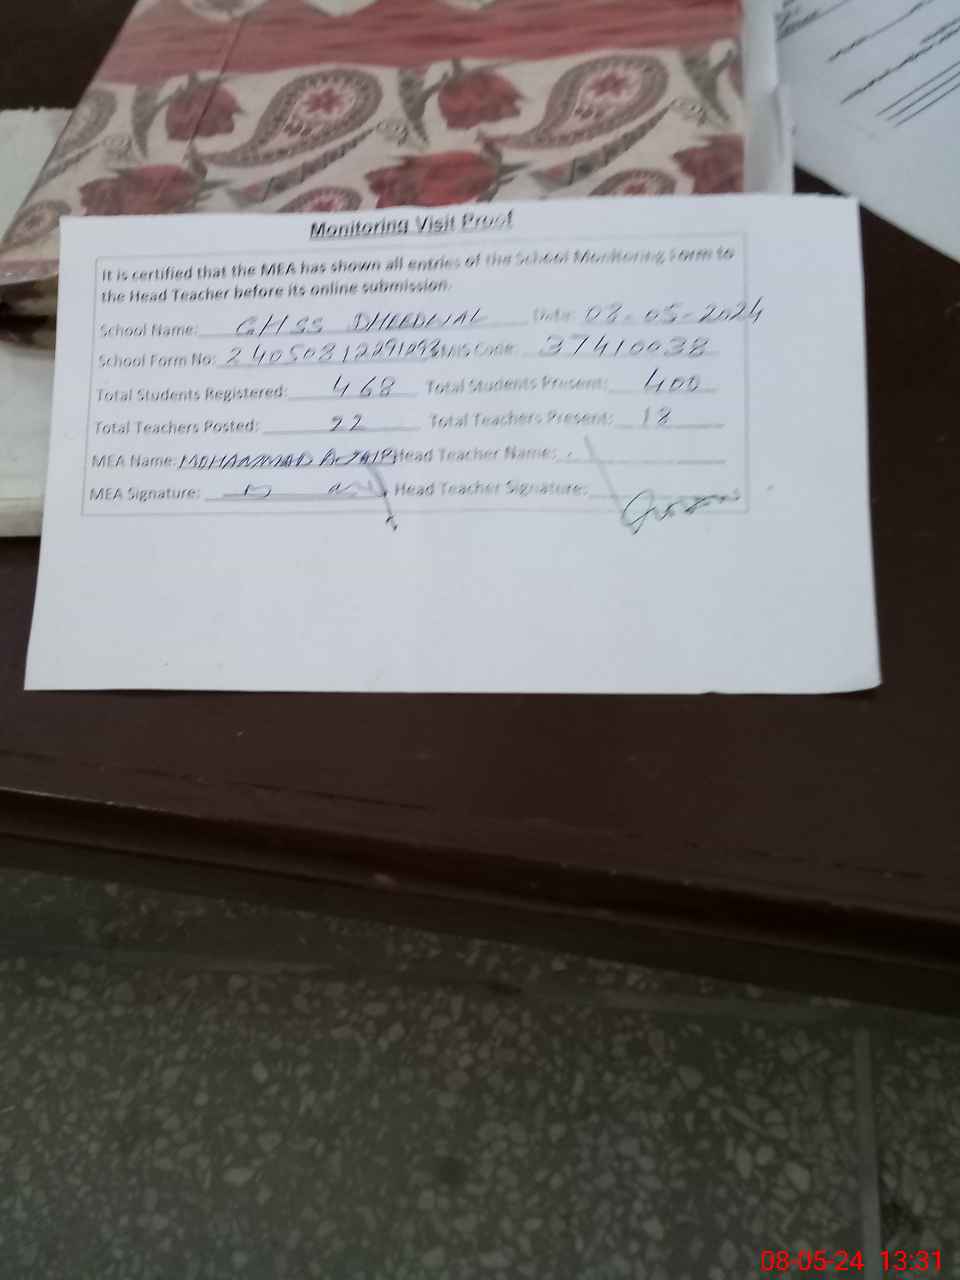 Monitoring Visit Proof
It is certified that the MEA has shown all entries of the School Monitoring Form to
the Head Teacher before its online submission.
School Name: GHSS DHEEDWAL Date: 08-05-2024
School Form No: EMIS Code: 37410038
Total Students Registered: 468 Total Students Present: 400
Total Teachers Posted: 22 Total Teachers Present: 18
MEA Name: MOHAMMAD Head Teacher Name:
MEA Signature: Head Teacher Signature:
08-05-24 13:31